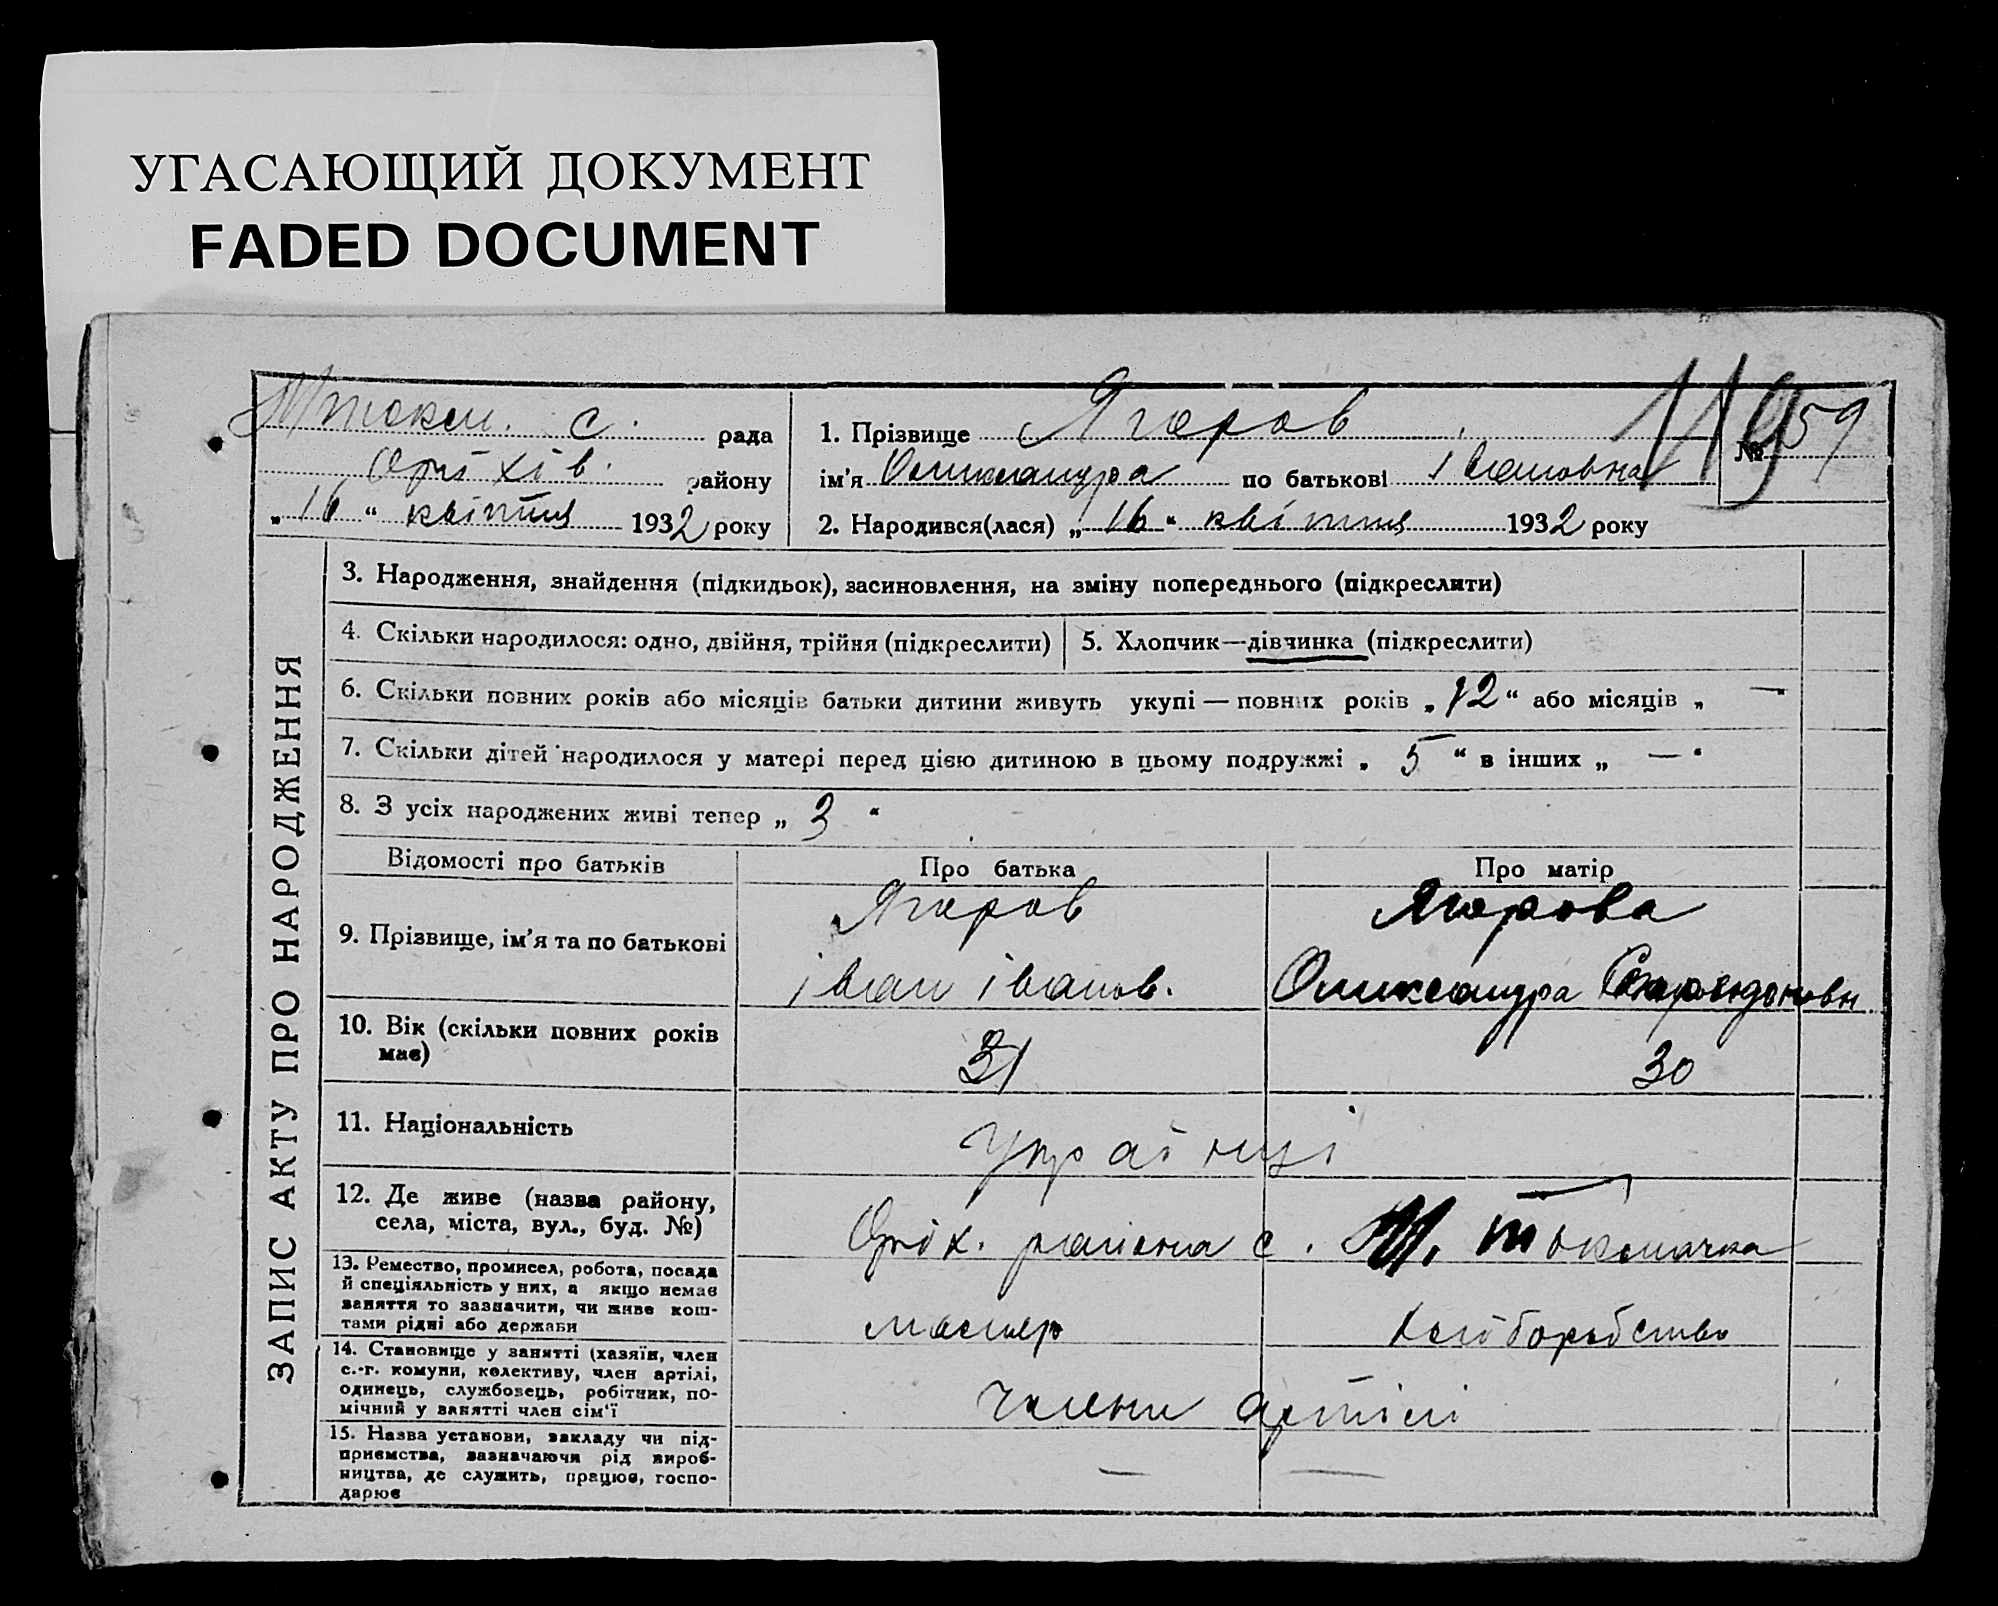 УГАСАЮЩИЙ ДОКУМЕНТ
FADED DOCUMENT
Мтокм. с. рада
Оріхів. району
„16“ квітня 1932 року
1. Прізвище Ягоров
ім'я Олександра по батькові Івановна
2. Народився(лася) „16“ квітня 1932 року
119
№ 59
ЗАПИС АКТУ ПРО НАРОДЖЕННЯ
3. Народження, знайдення (підкидьок), засиновлення, на зміну попереднього (підкреслити)
4. Скільки народилося: одно, двійня, трійня (підкреслити)
5. Хлопчик—дівчинка (підкреслити)
6. Скільки повних років або місяців батьки дитини живуть укупі — повних років „12“ або місяців „—“
7. Скільки дітей народилося у матері перед цією дитиною в цьому подружжі „5“ в інших „—“
8. З усіх народжених живі тепер „3“
Відомості про батьків
Про батька
Про матір
9. Прізвище, ім'я та по батькові
Ягоров
Іван Іванов.
Ягорова
Олександра
10. Вік (скільки повних років
має)
31
30
11. Національність
Українці
12. Де живе (назва району,
села, міста, вул., буд. №)
Оріх. района с. М. Токмачка
13. Ремество, промисел, робота, посада
й спеціяльність у них, а якщо немає
заняття то зазначити, чи живе кош-
тами рідні або держави
маляр
хліборобство
14. Становище у занятті (хазяїн, член
с.-г. комуни, колективу, член артілі,
одинець, службовець, робітник, по-
мічний у занятті член сім'ї
члени артілі
15. Назва установи, закладу чи під-
приємства, зазначаючи рід вироб-
ництва, де служить, працює, госпо-
дарює
— —